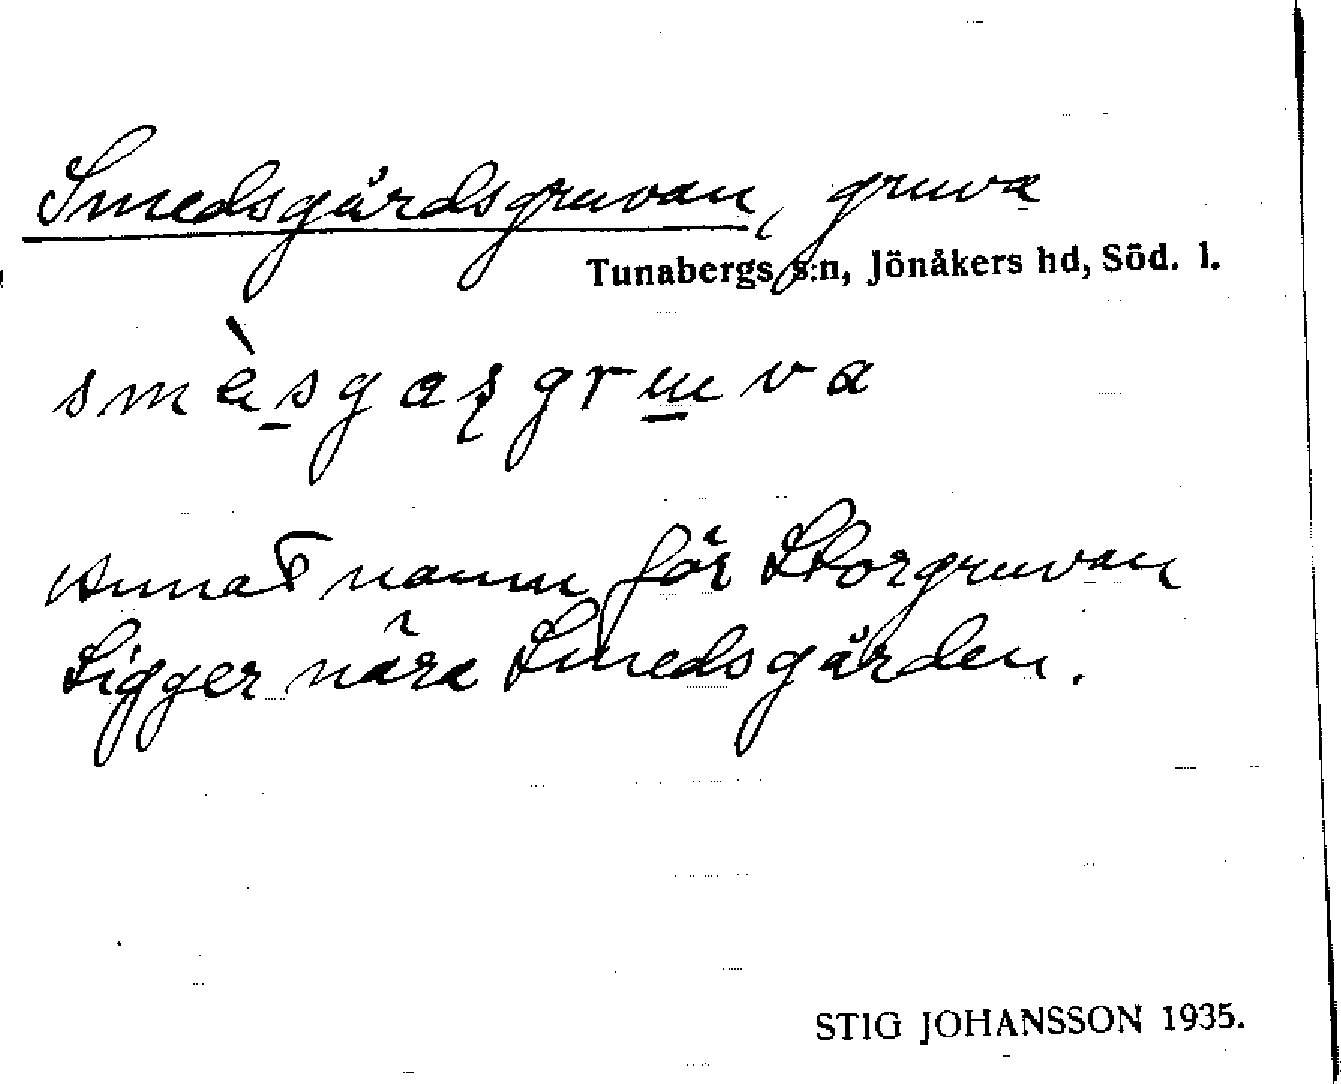 Smedsgårdsgruvan, gruva
Tunabergs s:n, Jönåkers hd, Söd. l.
smès̠gaʂgru̠va
Annat namn för Storgruvan
Ligger nära Smedsgården.
STIG JOHANSSON 1935.